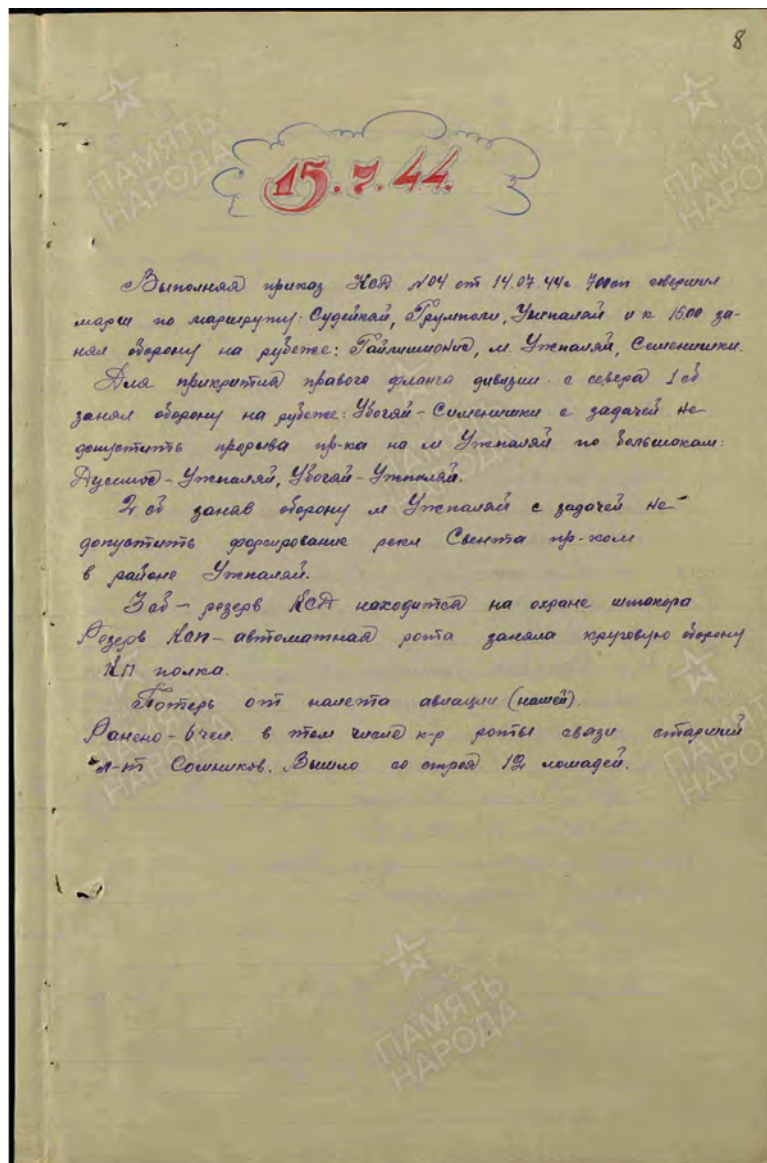 8
15.7.44.
Выполняя приказ КСД №04 от 14.07.44г 700сп совершил
марш по маршруту: Судейкяй, Трумполи, Ужпаляй и к 15.00 за-
нял оборону на рубеже: Гайлишионис, м. Ужпаляй, Семенишки.
Для прикрытия правого фланга дивизии с севера 1 сб
занял оборону на рубеже: Убогяй - Сименишки с задачей не
допустить прорыва пр-ка на м Ужпаляй по большакам:
Дусимос - Ужпаляй, Убогяй - Ужпаляй.
2 сб заняв оборону м Ужпаляй с задачей не
допустить форсирование реки Свента пр-ком
в районе Ужпаляй.
3 сб - резерв КСД находится на охране штакора
Резерв Ксп - автоматная рота заняла круговую оборону
КП полка.
Потерь от налета авиации (нашей).
Ранено - 6 чел. в том числе к-р роты связи старший
л-т Сомников. Вышло со строя 12 лошадей.
ПАМЯТЬ
НАРОДА